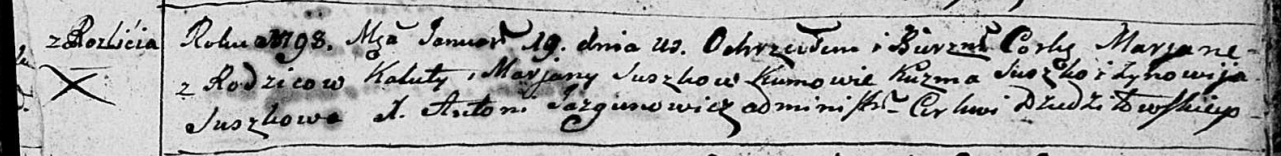 z Rozlićia Roku 1798. Mca Januar 19. dnia us. Ochrzciłem i Bierzm Corkę Maryanę
z Rodzicow Kaluty i Maryany Suszkow Kumowie Kuzma Suszko i Zynowija
Suszkowa X. Antoni Jazgunowicz administr Cerkwi Dziedziłowskiey